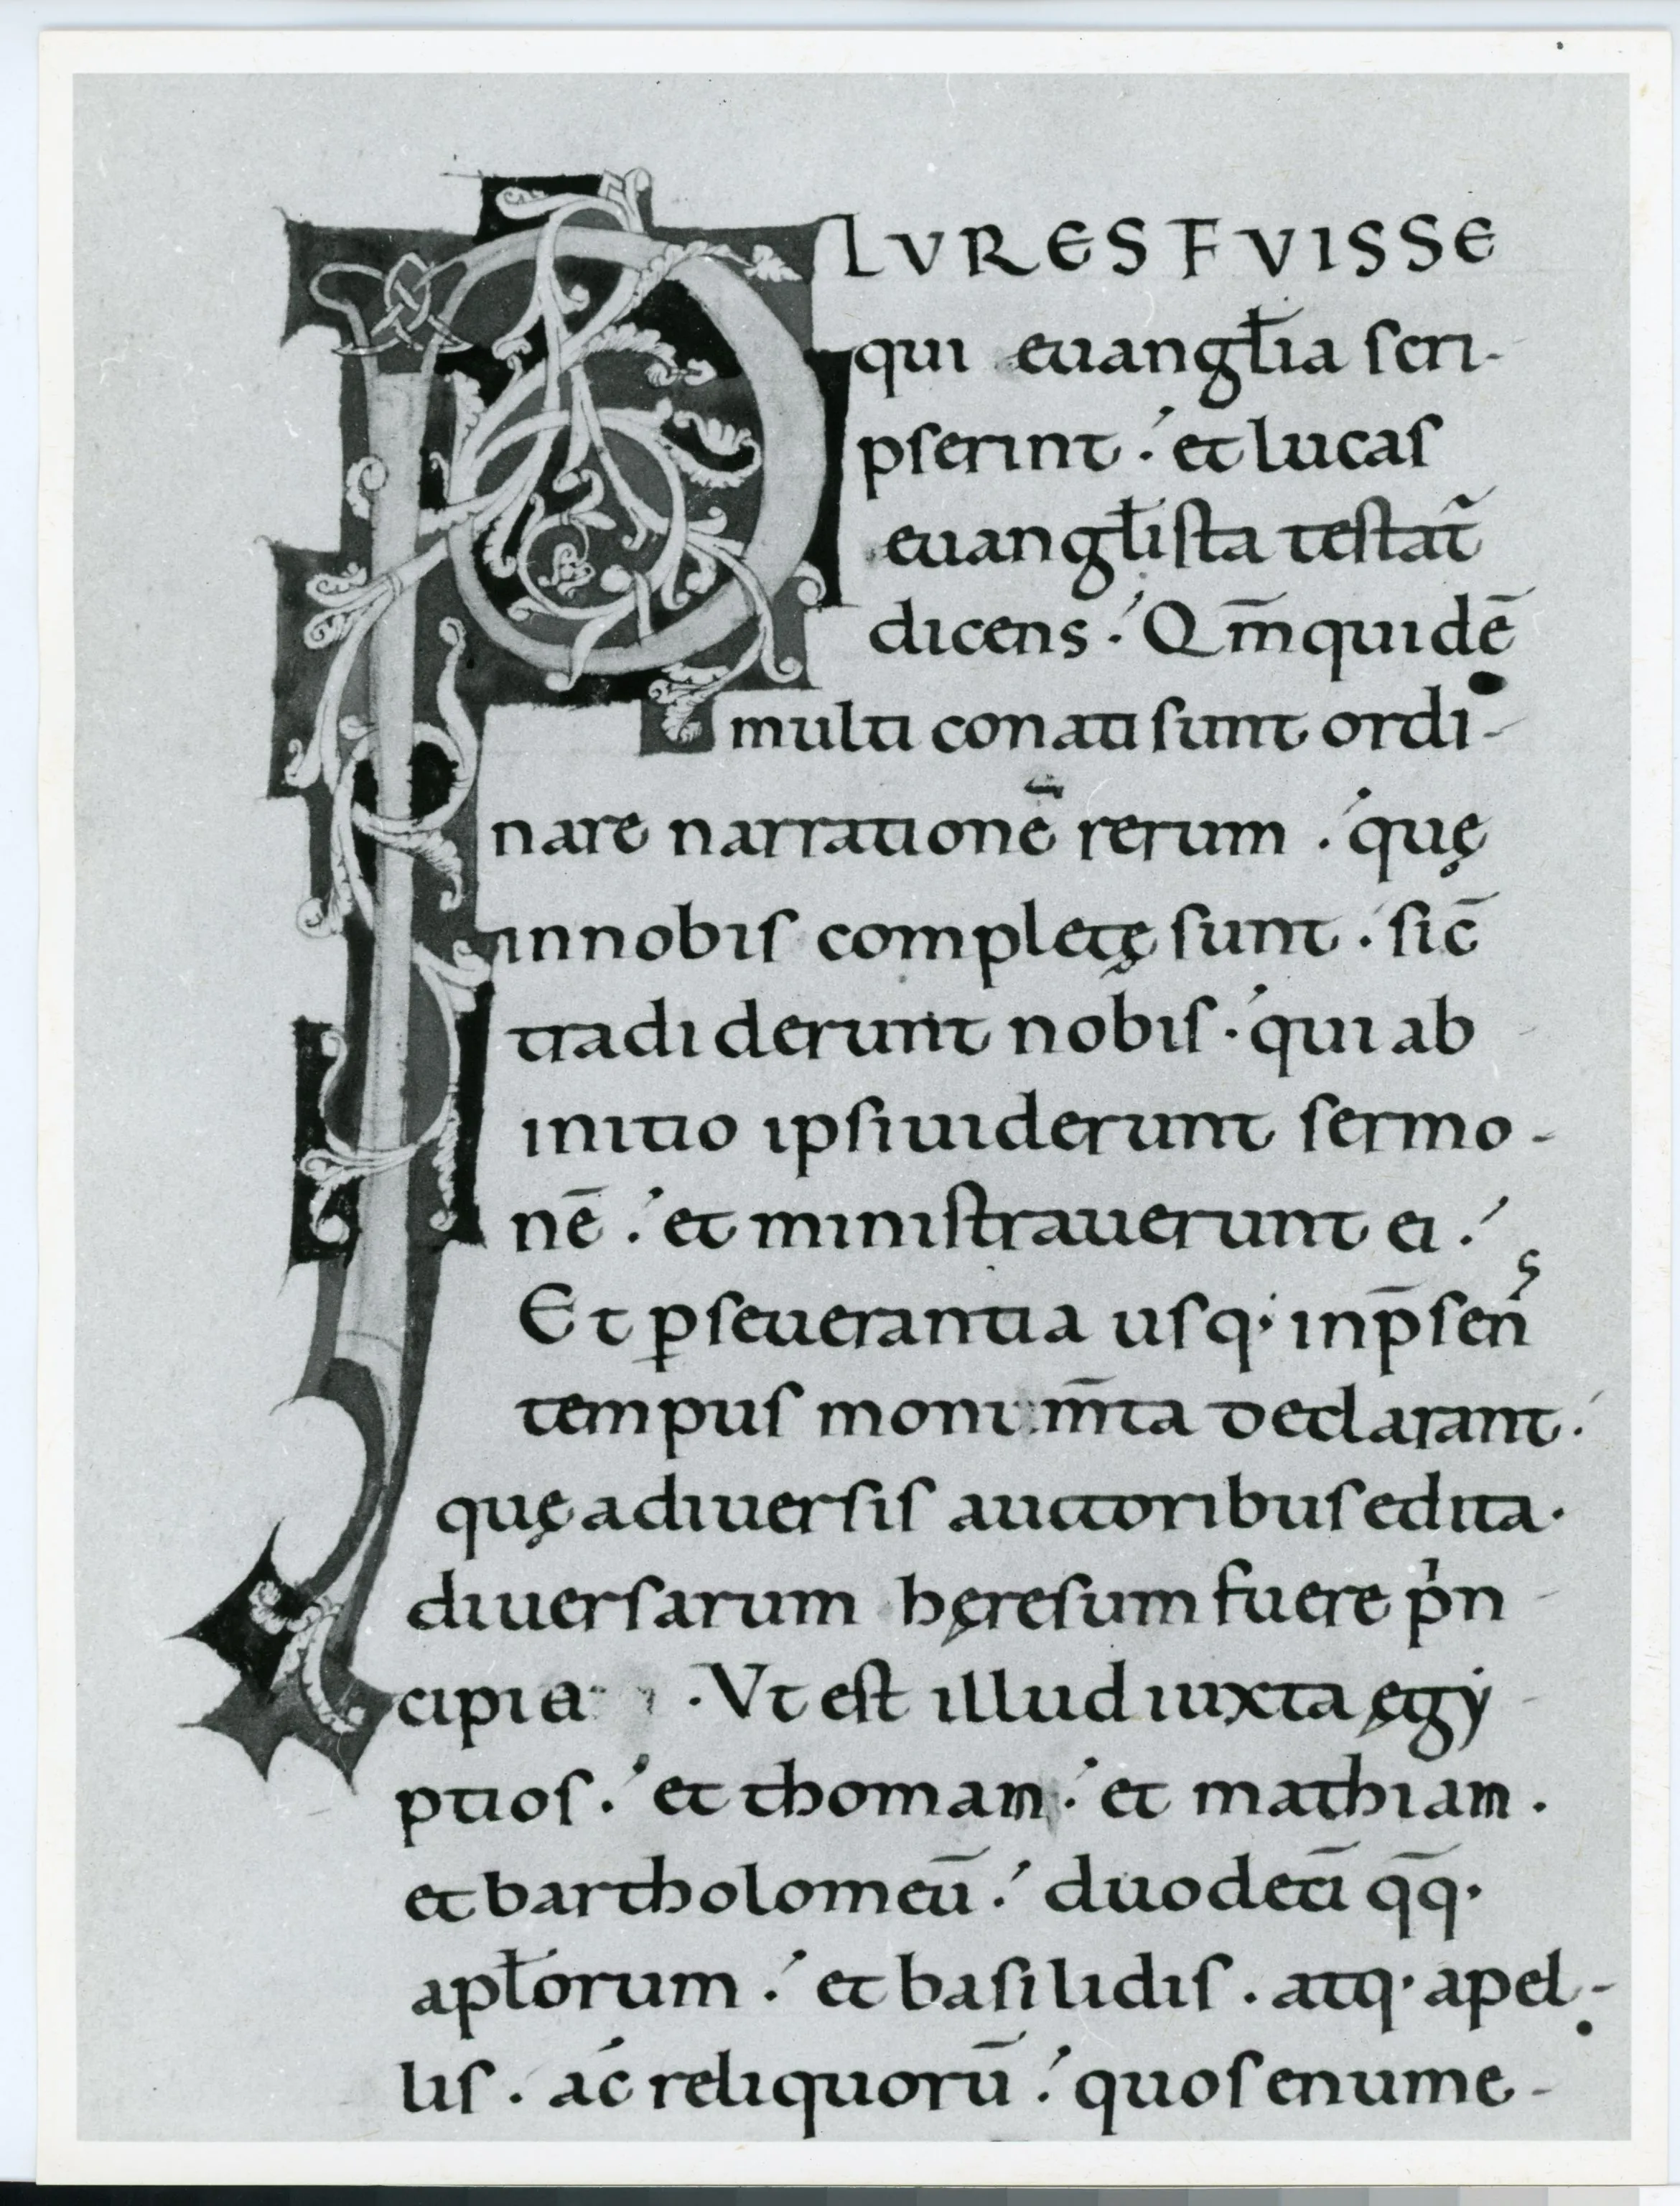 PLVRES FVISSE
qui euangłia scri-
pserint. et lucas
euangłista testat̃
dicens. Qm̄ quidē
multi conati sunt ordi-
nare narrationē rerum. quę
in nobis completę sunt. sic̄
tradiderunt nobis. qui ab
initio ipsi uiderunt sermo-
nē. et ministrauerunt ei.
Et ꝑseuerantia usq· in p̄sens
tempus monum̄ta declarant.
quę a diuersis auctoribus edita.
diuersarum hęresum fuere pⁱn
cipia. Vt est illud iuxta ęgẏ
ptios. et thomam. et mathian.
et bartholomeū. duodeci̅ q̄q·
apłorum. et basilidis. atq· apel-
lis. ac reliquorū. quos enume-